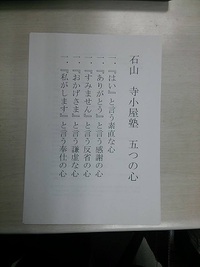 石山　寺小屋塾　五つの心
一．『はい』と言う素直な心
一．『ありがとう』と言う感謝の心
一．『すみません』と言う反省の心
一．『おかげさま』と言う謙虚な心
一．『私がします』と言う奉仕の心